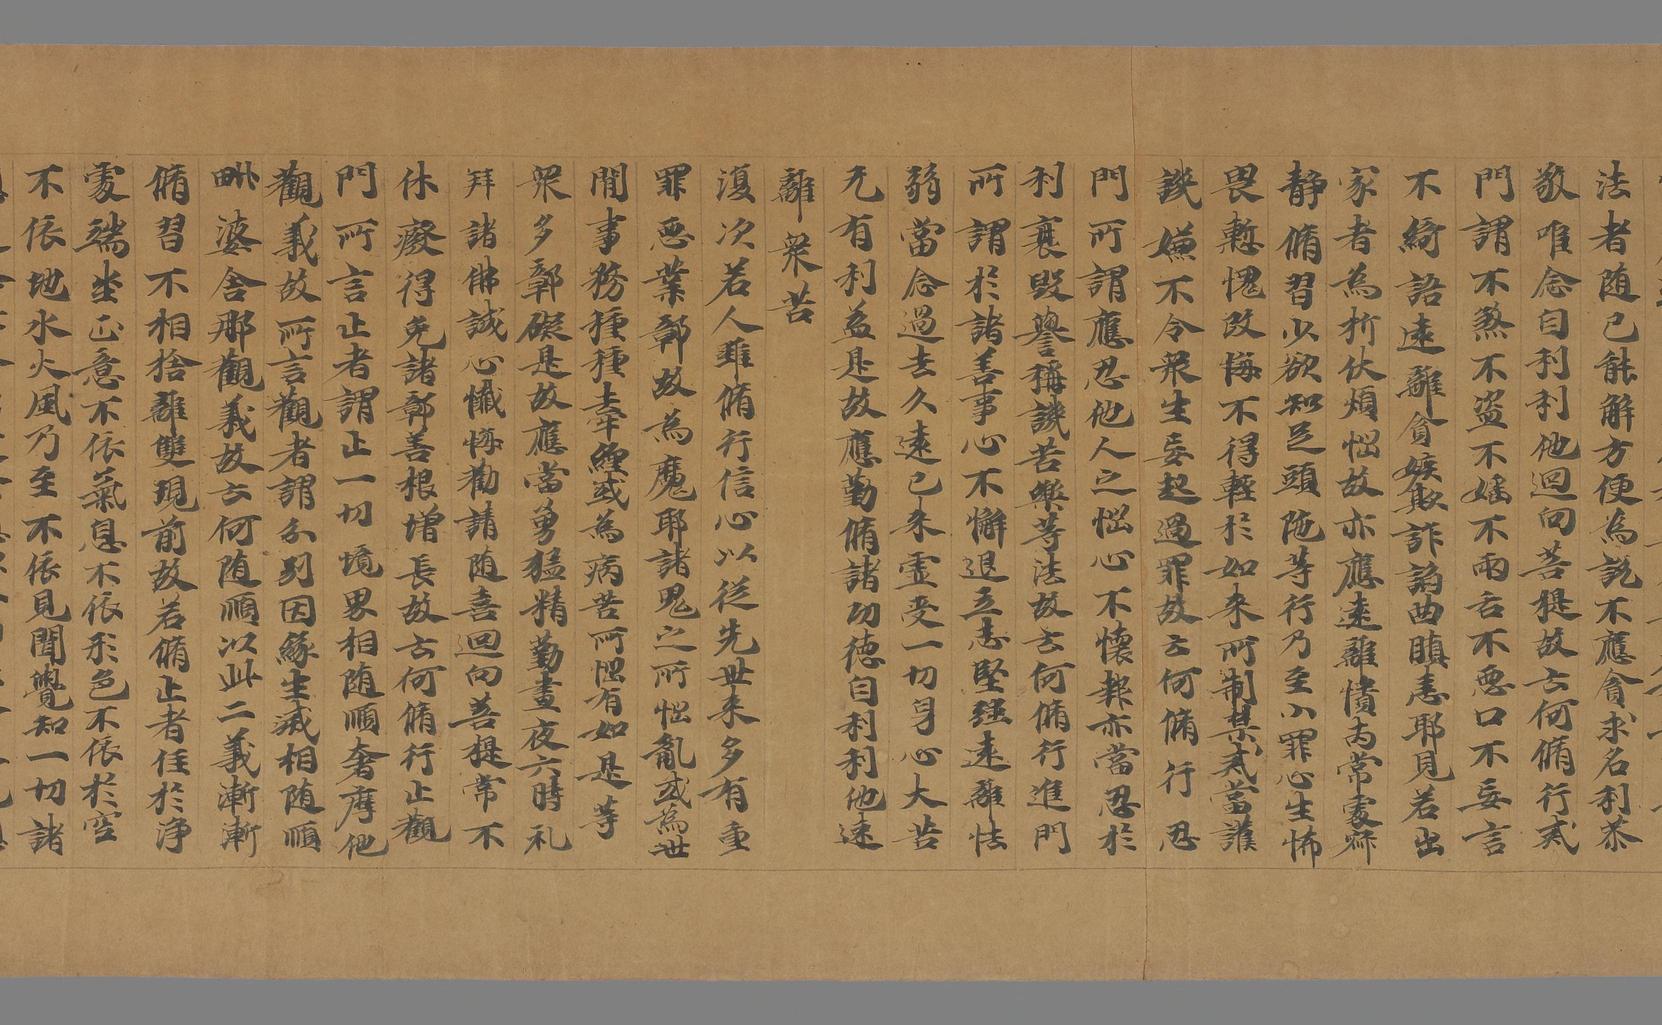 法者随已能解方便為説不應貪求名利恭
敬唯念自利利他迴向菩提故云何脩行戒
門謂不煞不盗不婬不兩舌不悪口不妄言
不綺語遠離貪嫉欺詐諂曲瞋恚耶見若出
家者為折伏煩惱故亦應遠離憒丙常處寂
静脩習少欲知足頭陁等行乃至小罪心生怖
畏慙愧改悔不得軽於如来所制禁戒當護
譏嫌不令衆生妄起過罪故云何脩行忍
門所謂應忍他人之惱心不懐報亦當忍於
利衰毀譽稱譏苦樂等法故云何脩行進門
所謂於諸善事心不懈退立志堅强遠離怯
弱當念過去久遠已来虚受一切身心大苦
无有利益是故應勤脩諸功徳自利利他速
離衆苦
復次若人雖脩行信心以従先世来多有重
罪悪業鄣故為魔耶諸鬼之所惱亂或為世
間事務種種牽纏或為病苦所惱有如是等
衆多鄣礙是故應當勇猛精勤晝夜六時礼
拜諸佛誠心懺悔勸請随喜迴向菩提常不
休癈得免諸鄣善根増長故云何脩行止觀
門所言止者謂止一切境界相随順奢摩他
觀義故所言觀者謂分別因緣生滅相随順
毗婆舍那觀義故云何随順以此二義漸漸
脩習不相捨離雙現前故若脩止者住於浄
處端坐正意不依氣息不依形色不依於空
不依地水火風乃至不依見聞覺知一切諸